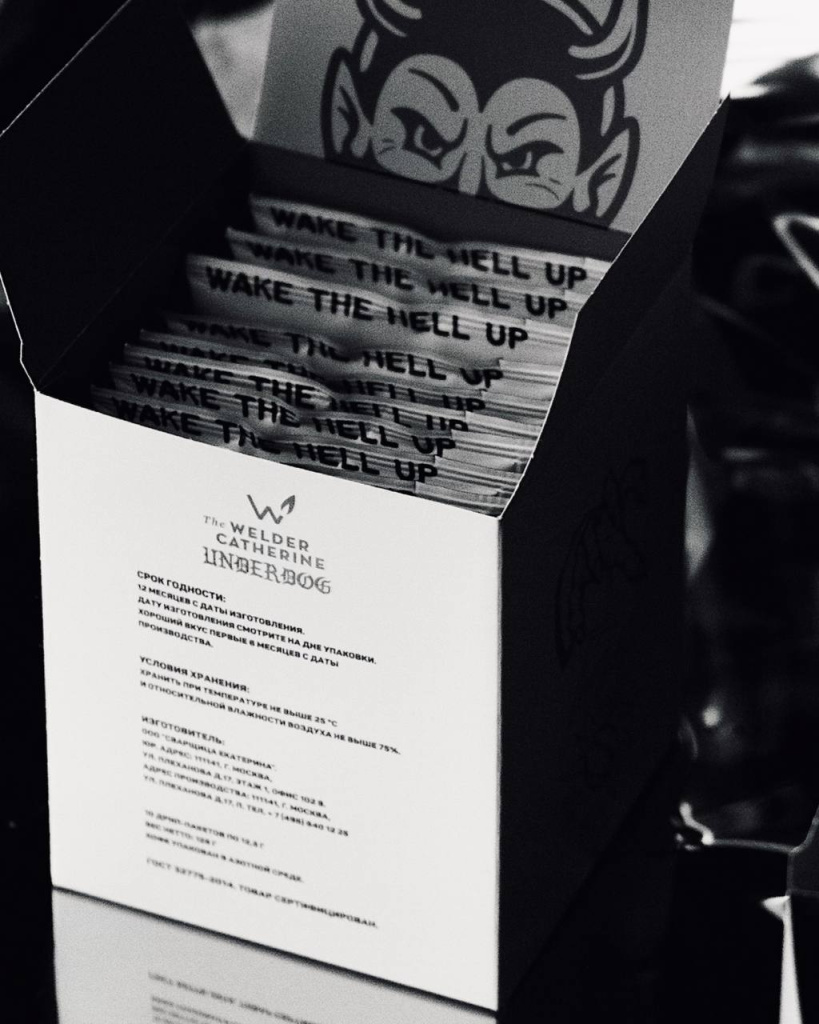 WAKE THE HELL UP
WAKE THE HELL UP
WAKE THE HELL UP
WAKE THE HELL UP
WAKE THE HELL UP
WAKE THE HELL UP
WAKE THE HELL UP
WAKE THE HELL UP
The WELDER
CATHERINE
UNDERDOG
СРОК ГОДНОСТИ:
12 МЕСЯЦЕВ С ДАТЫ ИЗГОТОВЛЕНИЯ.
ДАТУ ИЗГОТОВЛЕНИЯ СМОТРИТЕ НА ДНЕ УПАКОВКИ.
ХОРОШИЙ ВКУС ПЕРВЫЕ 6 МЕСЯЦЕВ С ДАТЫ
ПРОИЗВОДСТВА.
УСЛОВИЯ ХРАНЕНИЯ:
ХРАНИТЬ ПРИ ТЕМПЕРАТУРЕ НЕ ВЫШЕ 25 °C
И ОТНОСИТЕЛЬНОЙ ВЛАЖНОСТИ ВОЗДУХА НЕ ВЫШЕ 75%.
ИЗГОТОВИТЕЛЬ:
ООО "СВАРЩИЦА ЕКАТЕРИНА".
ЮР. АДРЕС: 111141, Г. МОСКВА,
УЛ. ПЛЕХАНОВА Д.17, ЭТАЖ 1, ОФИС 102 В.
АДРЕС ПРОИЗВОДСТВА: 111141, Г. МОСКВА,
УЛ. ПЛЕХАНОВА Д.17, П. ТЕЛ. +7 (495) 640 12 26
10 ДРИП-ПАКЕТОВ ПО 12,5 Г
ВЕС НЕТТО: 125 Г
КОФЕ УПАКОВАН В АЗОТНОЙ СРЕДЕ.
ГОСТ 32775-2014. ТОВАР СЕРТИФИЦИРОВАН.